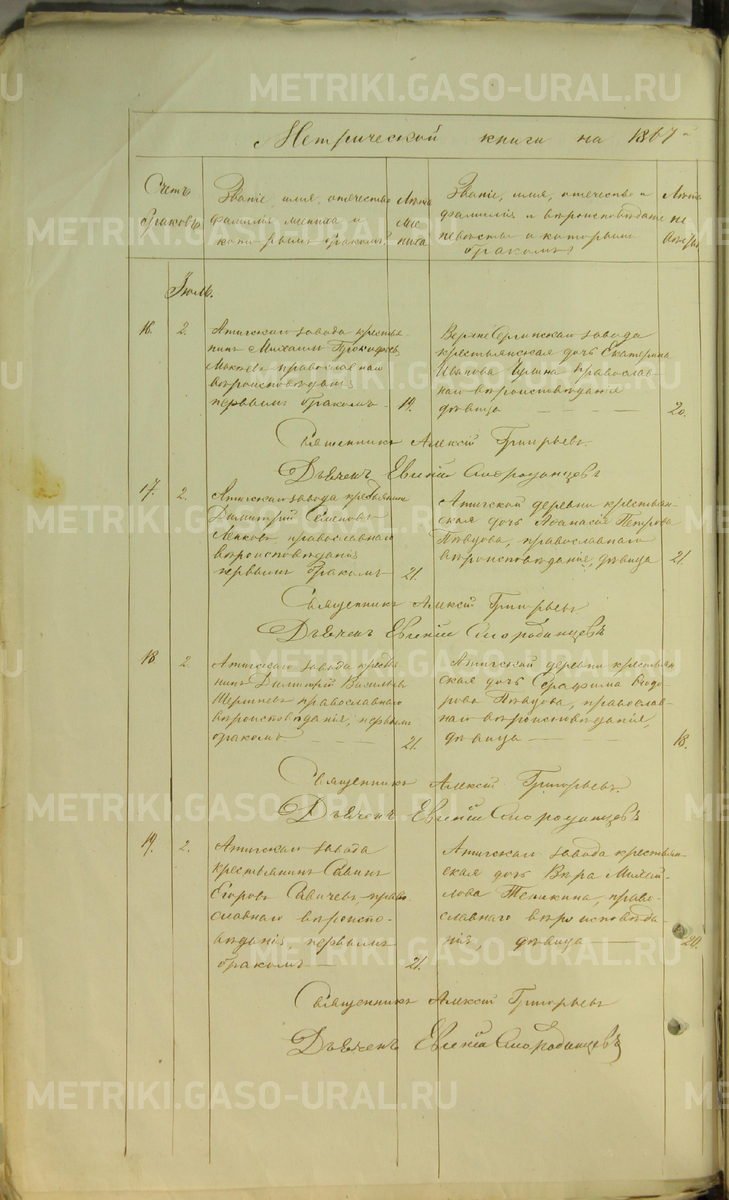 METRIKI.GASO-URAL.RU
Метрической книги на 1867
Счетъ
браковъ.
Званіе, имя, отечество
фамилія жениха и
которымъ бракомъ.
Лѣта
же-
ниха
Званіе, имя, отечество и
фамилія и вѣроисповѣданіе
невѣсты и которымъ
бракомъ
Лѣта
не
вѣсты
Іюль.
16. 2.
Атигскаго завода крестья-
нинъ Михаилъ Прокофьев
православнаго
вѣроисповѣданія
первымъ бракомъ 19.
Верхне Сергинскаго завода
крестьянская дочь Екатерина
Иванова православ-
наго вѣроисповѣданія
дѣвица 20.
Священникъ Алексій Григорьевъ.
Дьячекъ Евгеній Смородинцевъ
17. 2.
Атигскаго завода крестьянинъ
Димитрій Семеновъ
православнаго
вѣроисповѣданія
первымъ бракомъ 21.
Атигской деревни крестьян-
ская дочь Аѳанасія Петрова
Пѣвцова, православнаго
вѣроисповѣданія, дѣвица 21.
Священникъ Алексій Григорьевъ
Дьячекъ Евгеній Смородинцевъ
18 2
Атигскаго завода кресть
нинъ Димитрій Васильевъ
православнаго
вѣроисповѣданія, первымъ
бракомъ 21.
Атигской деревни крестьян
ская дочь Серафима Ѳедо-
рова Пѣвцова, православ-
наго вѣроисповѣданія,
дѣвица 18.
Священникъ Алексій Григорьевъ.
Дьячекъ Евгеній Смородинцевъ
19. 2.
Атигскаго завода
крестьянинъ Савинъ
Егоровъ Савичевъ право-
славнаго вѣроиспо-
вѣданія, первымъ
бракомъ 21.
Атигскаго завода крестьян-
ская дочь Вѣра Михай-
лова Тешкина, право-
славнаго вѣроисповѣда-
нія, дѣвица 20.
Священникъ Алексій Григорьевъ
Дьячекъ Евгеній Смородинцевъ